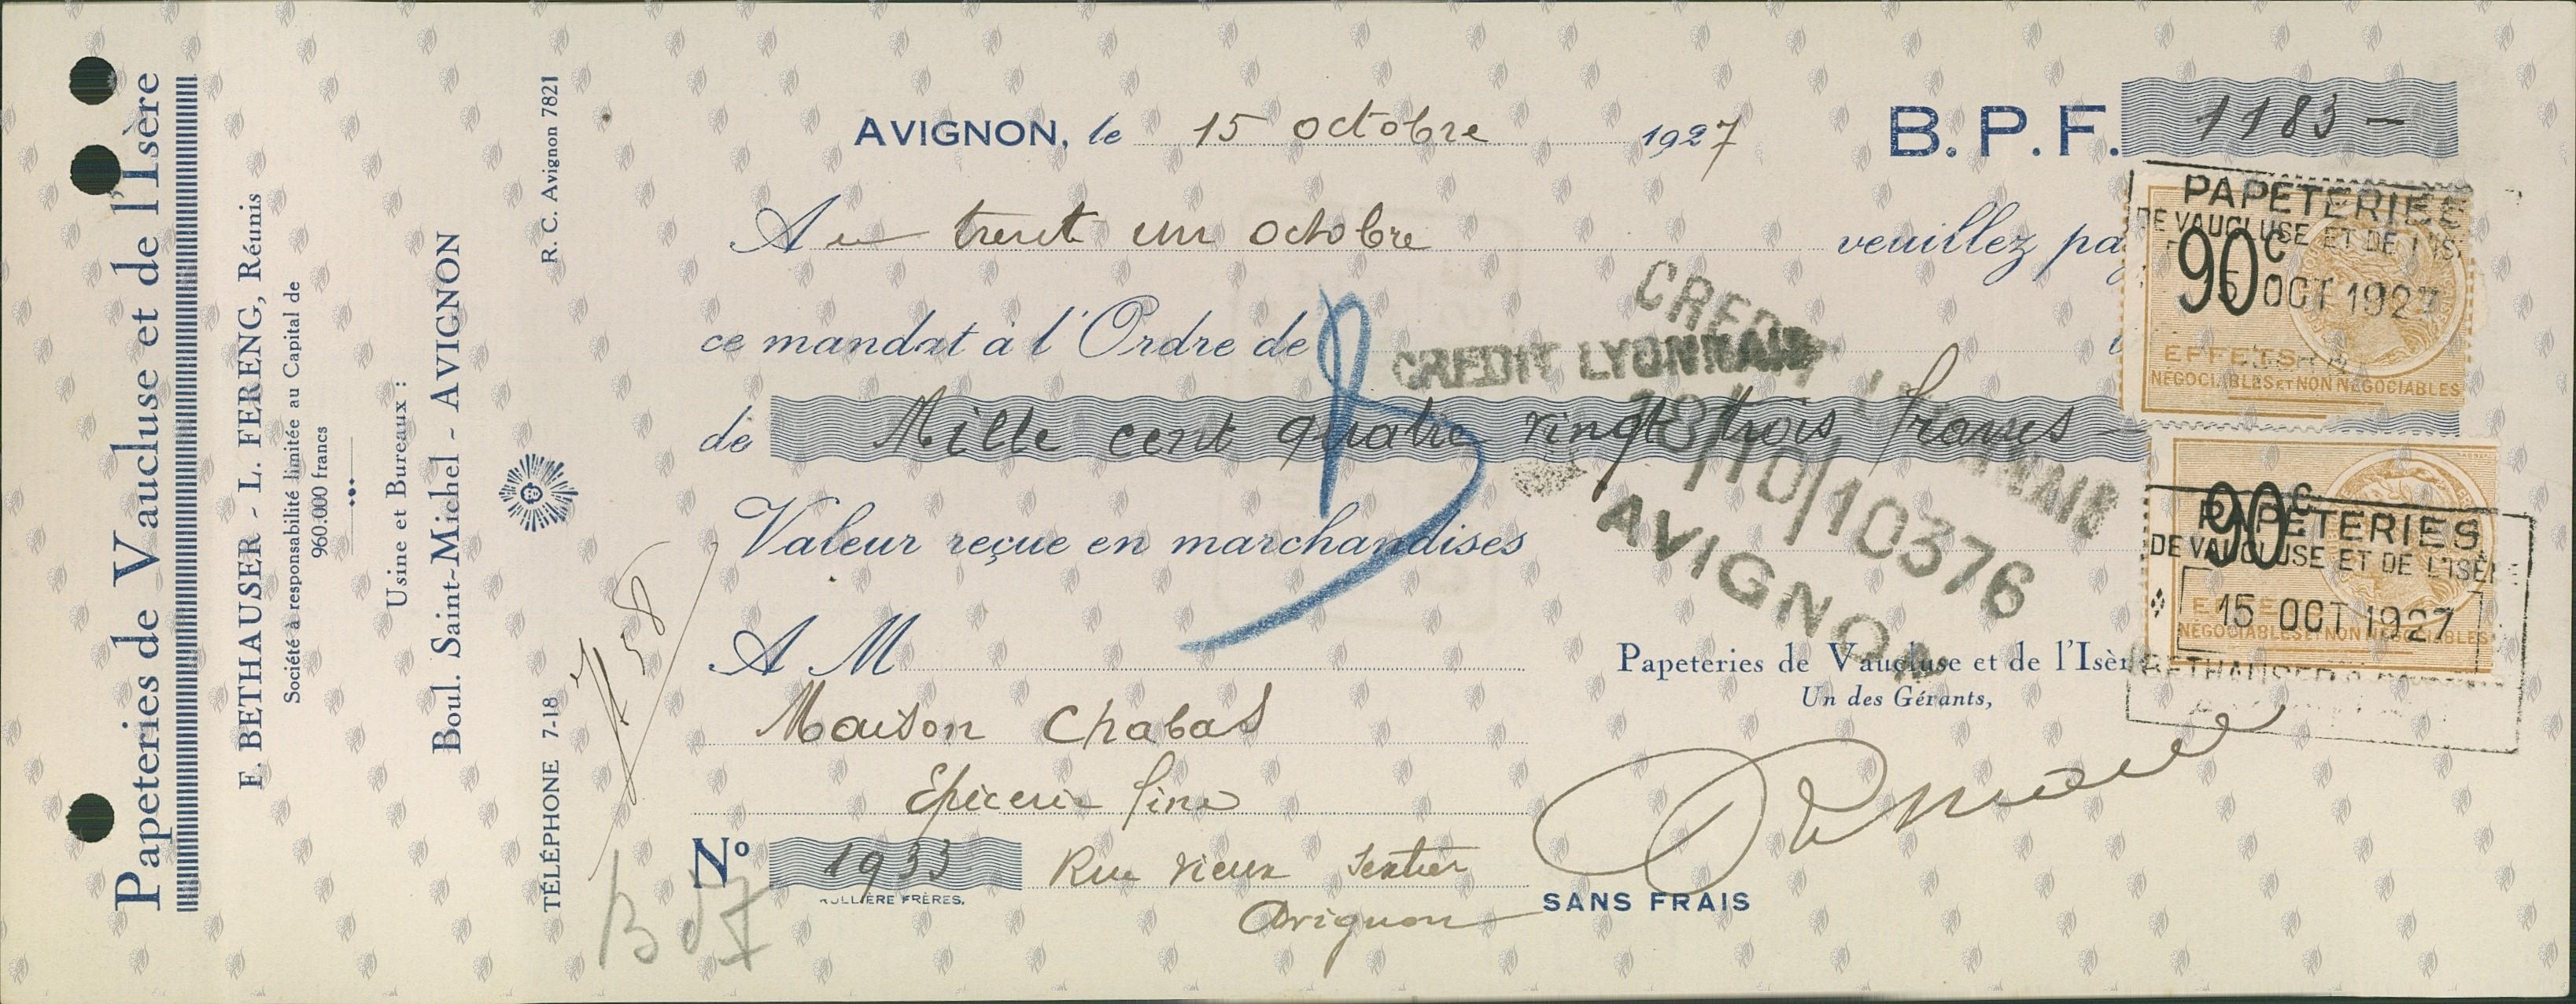 Papeteries de Vaucluse et de l'Isère
F. BETHAUSER - L. FERENG, Réunis
Société à responsabilité limitée au Capital de
960.000 francs
Usine et Bureaux :
Boul. Saint-Michel - AVIGNON
TÉLÉPHONE 7-18
R. C. Avignon 7821
AVIGNON, le 15 octobre 1927
B. P. F. 1183 -
Au trent un octobre veuillez pa
ce mandat à l'Ordre de
CREDIT LYONNAIS
de Mille cent quatre vingt trois francs
10/10376
AVIGNON
Valeur reçue en marchandises
A M
Maison Chabas
Epicerie fine
Nº 1933 Rue Vieux Sextier
Avignon
FRÈRES.
Papeteries de Vaucluse et de l'Isèr
Un des Gérants,
SANS FRAIS
PAPETERIES
DE VAUCLUSE ET DE L'IS
90c
5 OCT 1927
EFFETS
NÉGOCIABLES ET NON NÉGOCIABLES
90c
PAPETERIES
DE VAUCLUSE ET DE L'ISÈ
15 OCT 1927
NÉGOCIABLES ET NON NÉGOCIABLES